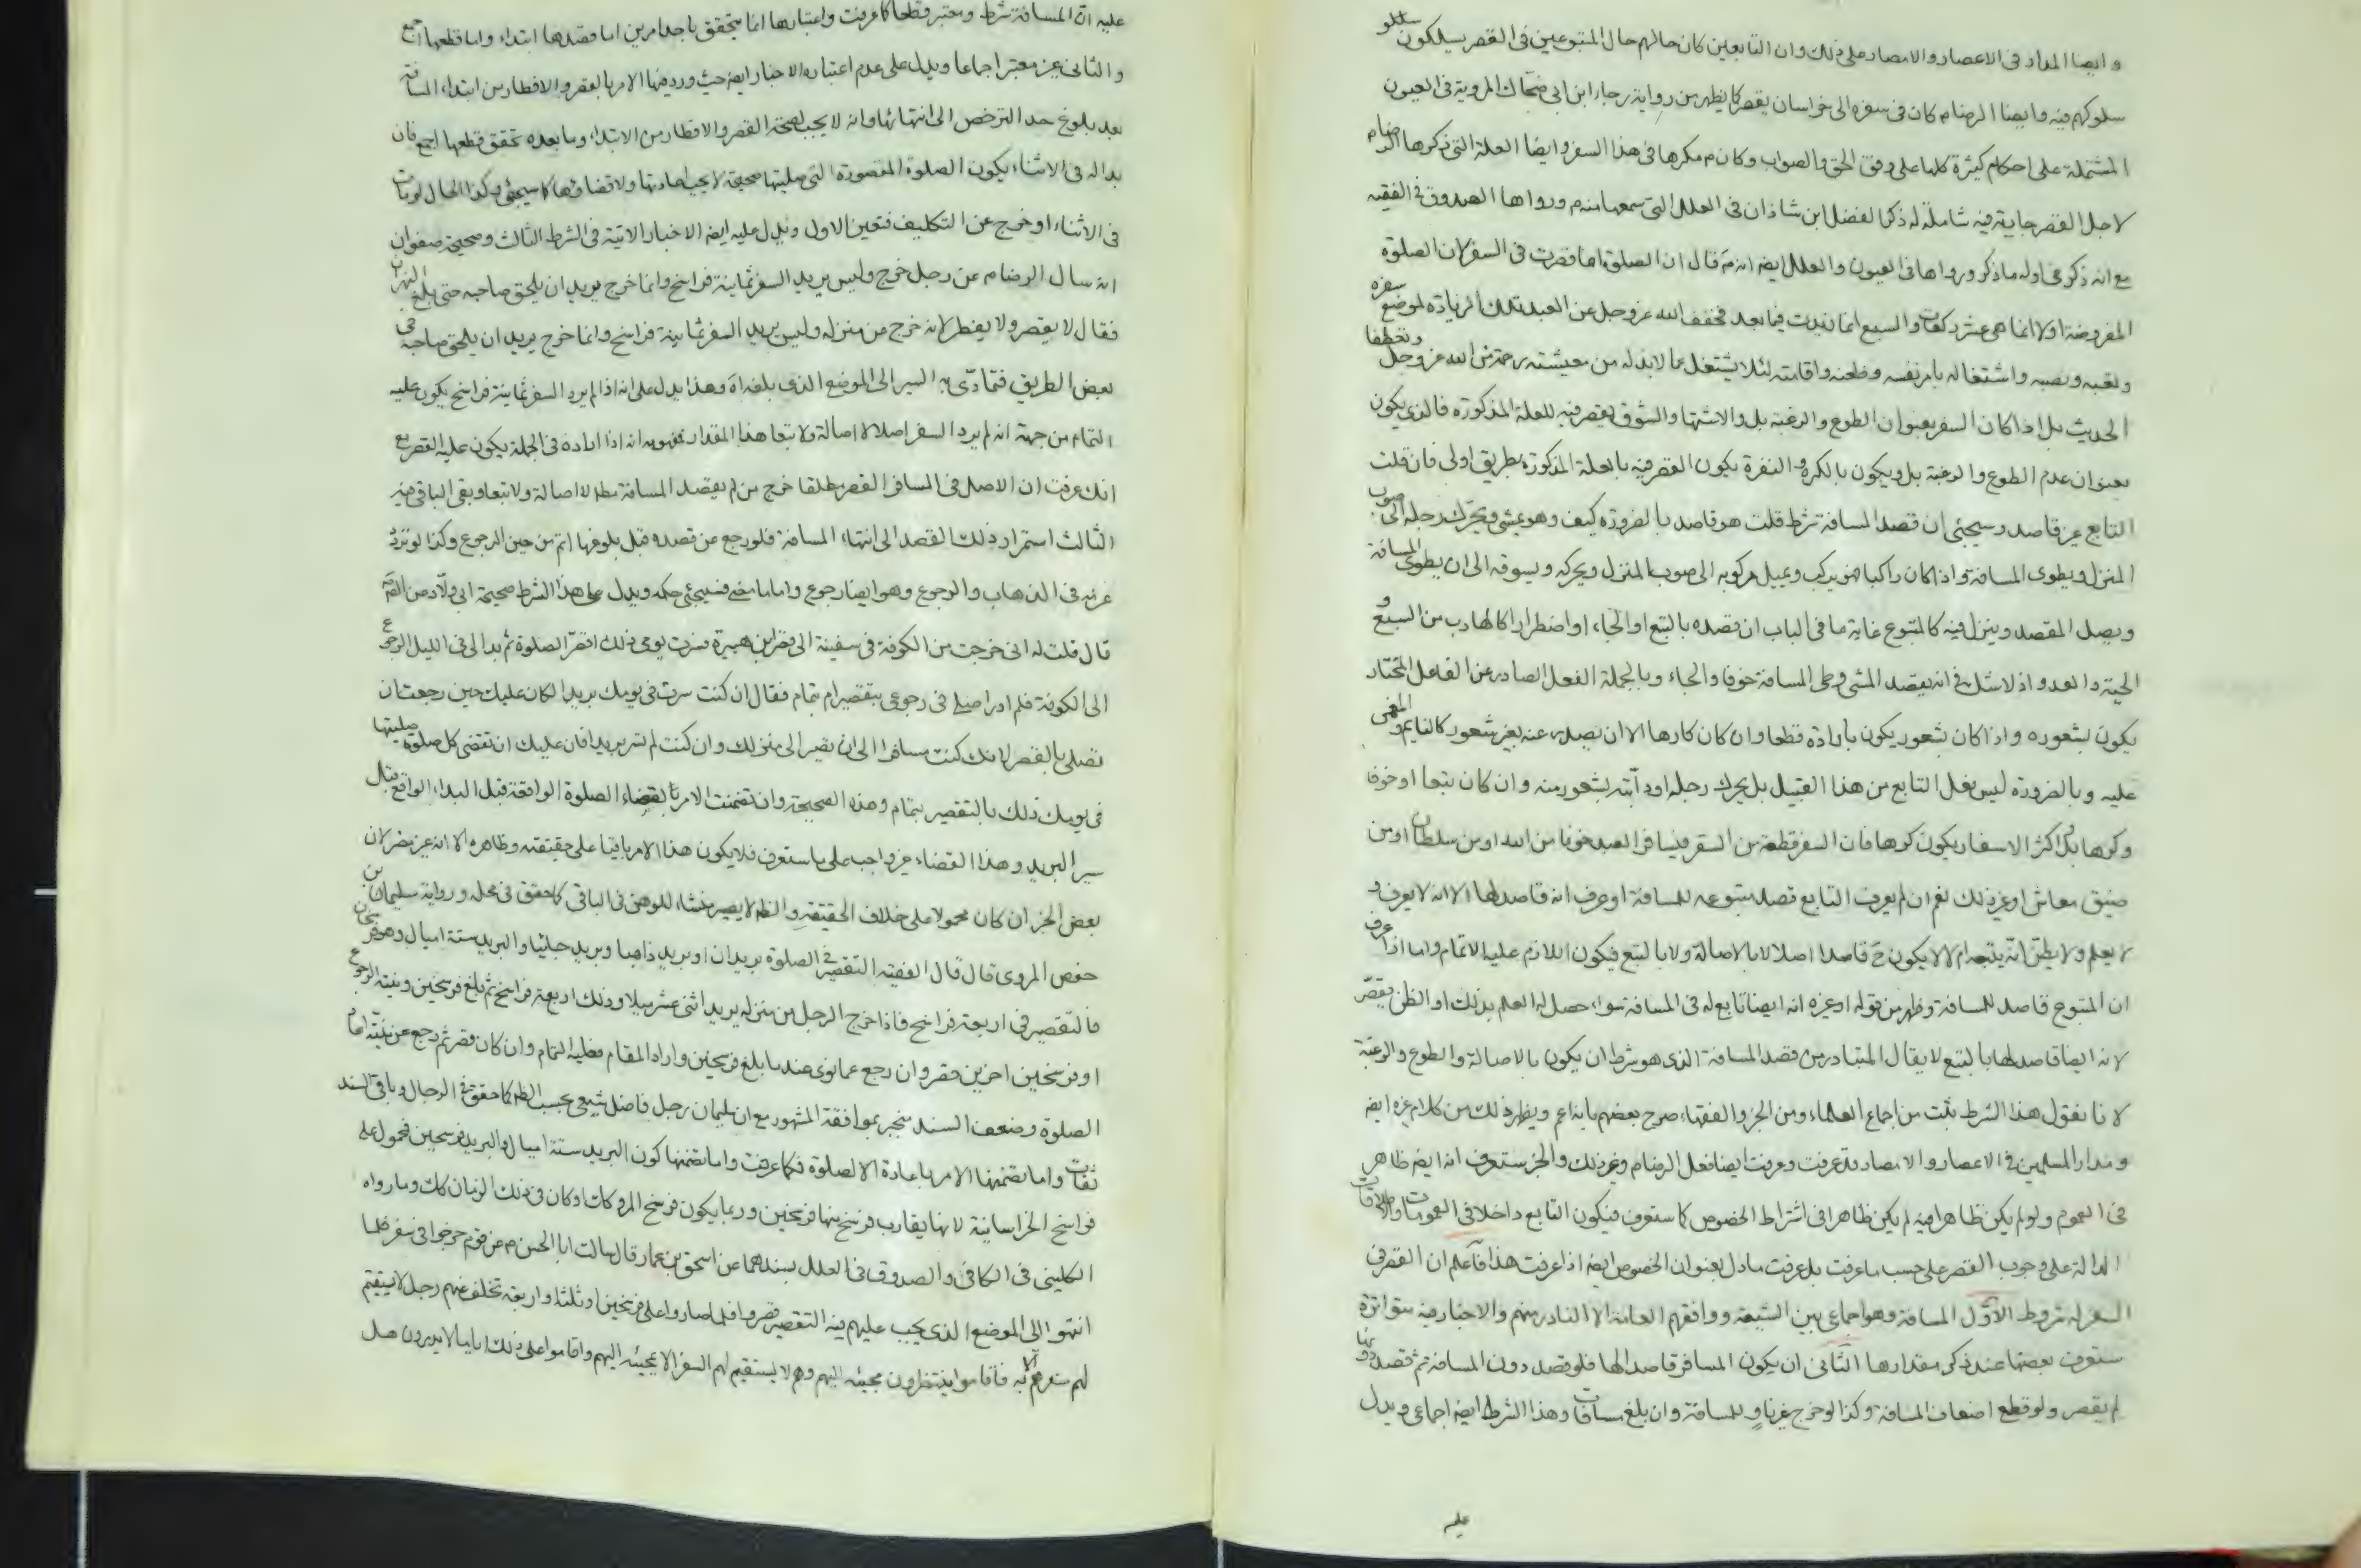 و ايضا المدار فى الاعصار و الامصار على ذلك وان التابعين كان حالهم حال المتبوعين فى القصر يسلكون سلو
سلوكهم فيه وايضا الرضا م كان فى سفره الى خراسان يقصر كما يظهر من رواية رجاء ابن ابى ضحاك المروية فى العيون
المشتملة على احكام كثيرة كلها على وفق الحق والصواب وكان م مكرها فى هذا السفر وايضا العلة التى ذكرها الرضا م
لاجل القصر جارية فيه شاملة له ذكر الفضل ابن شاذان فى العلل التى سمعها منه م ورواها الصدوق فى الفقيه
مع انه ذكر فى اوله ما ذكر ورواها فى العيون والعلل ايضا انه م قال ان الصلوة انما قصرت فى السفر لان الصلوة
المفروضة اولا انما هى عشر ركعات والسبع انما زيدت فيما بعد فخفف الله عز وجل عن العبد تلك الزيادة لموضع سفره
وتعبه ونصبه واشتغاله بامر نفسه وظعنه واقامته لئلا يشتغل عما لا بد له من معيشته رحمة من الله عز وجل وتعطفا
الحديث بل اذا كان السفر بعنوان الطوع والرغبة بل والاشتهاء والشوق يقصر فيه للعلة المذكورة فالذى يكون
بعنوان عدم الطوع والرغبة بل ويكون بالكره و النفرة يكون القصر فيه بالعلة المذكورة بطريق اولى فان قلت
التابع غير قاصد وسيجئ ان قصد المسافة شرط قلت هو قاصد بالضرورة كيف وهو يمشى ويحرك رجله الى صوب
المنزل ويطوى المسافة واذا كان راكبا فهو يركب ويميل مركوبه الى صوب المنزل ويحركه ويسوقه الى ان يطوى المسافة
ويصل المقصد وينزل فيه كالمتبوع غاية ما فى الباب ان قصده بالتبع او الجاء او اضطرارا كالهارب من السبع و
الحية والعدو اذ لا شك فى انه يقصد المشى وطى المسافة خوفا والجاء وبالجملة الفعل الصادر عن الفاعل المختار
يكون بشعوره واذا كان بشعور يكون بارادة قطعا وان كان كارها الا ان يصدر عنه بغير شعور كالنايم والمغمى
عليه وبالضرورة ليس فعل التابع من هذا القبيل بل يحرك رجله او دابته بشعور منه وان كان تبعا او خوفا
وكرها بل اكثر الاسفار يكون كرها فان السفر قطعة من السقر فيسافر العبد خوفا من الله او من سلطان او من
ضيق معاش او غير ذلك نعم ان لم يعرف التابع قصد متبوعه للمسافة او عرف انه قاصد لها الا انه لا يعرف و
لا يعلم ولا يظن انه يتبعه ام لا لا يكون ح قاصدا اصلا لا بالاصالة ولا بالتبع فيكون اللازم عليه الاتمام واما اذا عرف
ان المتبوع قاصد للمسافة وظهر من قوله او غيره انه ايضا تابع له فى المسافة سواء حصل له العلم بذلك او الظن يقصر
لانه ايضا قاصد لها بالتبع لا يقال المتبادر من قصد المسافة الذى هو شرط ان يكون بالاصالة والطوع والرغبة
لانا نقول هذا الشرط يثبت من اجماع العلماء ومن الخبر والفقهاء صرح بعضهم بانه اعم ويظهر ذلك من كلام غيره ايضا
ومدار المسلمين فى الاعصار والامصار قد عرفت وعرفت ايضا فعل الرضا م وغير ذلك والخبر ستعرف انه ايضا ظاهر
فى العموم ولو لم يكن ظاهرا فيه لم يكن ظاهرا فى اشتراط الخصوص كما ستعرف فيكون التابع داخلا فى العمومات والاطلاقات
الدالة على وجوب القصر على حسب ما عرفت بل عرفت ما دل بعنوان الخصوص ايضا اذا عرفت هذا فاعلم ان القصر فى
السفر له شروط الاول المسافة وهو اجماعى بين الشيعة ووافقهم العامة الا النادر منهم والاخبار فيه متواترة
ستعرف بعضها عند ذكر مقدارها الثانى ان يكون المسافر قاصدا لها فلو قصد دون المسافة ثم قصد دونها
لم يقصر ولو قطع اضعاف المسافة وكذا لو خرج غير ناو للمسافة وان بلغ مسافات وهذا الشرط ايضا اجماعى ويدل
عليه
عليه ان المسافة شرط ومعتبر قطعا كما عرفت واعتبارها انما يتحقق باحد امرين اما قصدها ابتداء واما قطعها اجمع
والثانى غير معتبر اجماعا ويدل على عدم اعتباره الاخبار ايضا حيث ورد فيها الامر بالقصر والافطار من ابتداء المسافة
بعد بلوغ حد الترخص الى انتهائها وانه لا يجب لصحة القصر والافطار من الابتداء وما بعده تحقق قطعها اجمع فان
بدا له فى الاثناء يكون الصلوة المقصورة التى صليتها صحيحة لا يجب اعادتها ولا قضاؤها كما سيجئ وكذا الحال لو مات
فى الاثناء او خرج عن التكليف فتعين الاول ويدل عليه ايضا الاخبار الاتية فى الشرط الثالث وصحيحة صفوان
انه سال الرضا م عن رجل خرج وليس يريد السفر ثمانية فراسخ وانما خرج يريد ان يلحق صاحبه حتى بلغ النهروان
فقال لا يقصر ولا يفطر لانه خرج من منزله وليس يريد السفر ثمانية فراسخ وانما خرج يريد ان يلحق صاحبه فى
بعض الطريق فتمادى به السير الى الموضع الذى بلغه اه وهذا يدل على انه اذا لم يرد السفر ثمانية فراسخ يكون عليه
التمام من جهة انه لم يرد السفر اصلا لا اصالة ولا تبعا هذا المقدار فمفهومه انه اذا اراده فى الجملة يكون عليه القصر مع
انك عرفت ان الاصل فى المسافر القصر مطلقا خرج من لم يقصد المسافة مطلا لا اصالة ولا تبعا وبقى الباقى فيه
الثالث استمرار ذلك القصد الى انتهاء المسافة فلو رجع عن قصده قبل بلوغها اتم من حين الرجوع وكذا لو تردد
عزمه فى الذهاب والرجوع وهو ايضا رجوع واما ما مضى فسيجئ حكمه ويدل على هذا الشرط صحيحة ابى ولاد عن الصم
قال قلت له انى خرجت من الكوفة فى سفينة الى قصر ابن هبيرة فسرت يومى ذلك اقصر الصلوة ثم بدا لى فى الليل الرجوع
الى الكوفة فلم ادر اصلى فى رجوعى بتقصير ام بتمام فقال ان كنت سرت فى يومك بريدا لكان عليك حين رجعت ان
تصلى بالقصر لانك كنت مسافرا الى ان تصير الى منزلك وان كنت لم تسر بريدا فان عليك ان تقضى كل صلوة صليتها
فى يومك ذلك بالتقصير بتمام وهذه الصحيحة وان تضمنت الامر بقضاء الصلوة الواقعة قبل البداء الواقع قبل
سير البريد وهذا القضاء غير واجب على ما ستعرف فلا يكون هذا الامر باقيا على حقيقته وظاهره الا انه غير مضر لان
بعض الخبر ان كان محمولا على خلاف الحقيقة والظه لا يصير منشاء للوهن فى الباقى كما حقق فى محله ورواية سليمان بن
حفص المروى قال قال الفقيه التقصير فى الصلوة بريدان او بريد ذاهبا وبريد جائيا والبريد ستة اميال وهو فرسخان
فالتقصير فى اربعة فراسخ فاذا خرج الرجل من منزله يريد اثنى عشر ميلا وذلك اربعة فراسخ ثم بلغ فرسخين ونيته الرجوع
او فرسخين اخرين قصر وان رجع عما نوى عند ما بلغ فرسخين واراد المقام فعليه التمام وان كان قصر ثم رجع عن نيته اعاد
الصلوة وضعف السند منجبر بموافقة المشهور مع ان سليمان رجل فاضل شيعى بحسب الظه كما حقق فى الرجال وباقى السند
ثقات واما تضمنها الامر باعادة الصلوة فكما عرفت واما تضمنها كون البريد ستة اميال والبريد فرسخين فمحمول على
فراسخ الخراسانية لانها يقارب فرسخ منها فرسخين وربما يكون فرسخ المروكات اد كان فى ذلك الزمان كك وما رواه
الكلينى فى الكافى والصدوق فى العلل بسندهما عن اسحق بن عمار قال سالت ابا الحسن م عن قوم خرجوا فى سفر فلما
انتهوا الى الموضع الذى يجب عليهم فيه التقصير قصروا فلما صاروا على فرسخين او ثلثة او اربعة تخلف عنهم رجل لا يستقيم
لهم سفرهم الا به فاقاموا ينتظرون مجيئه اليهم وهم لا يستقيم لهم السفر الا بمجيئه اليهم واقاموا على ذلك اياما لا يدرون هل